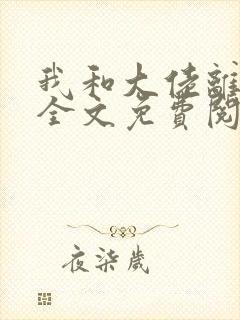 我和大佬離
全文免費閱
夜柒歲